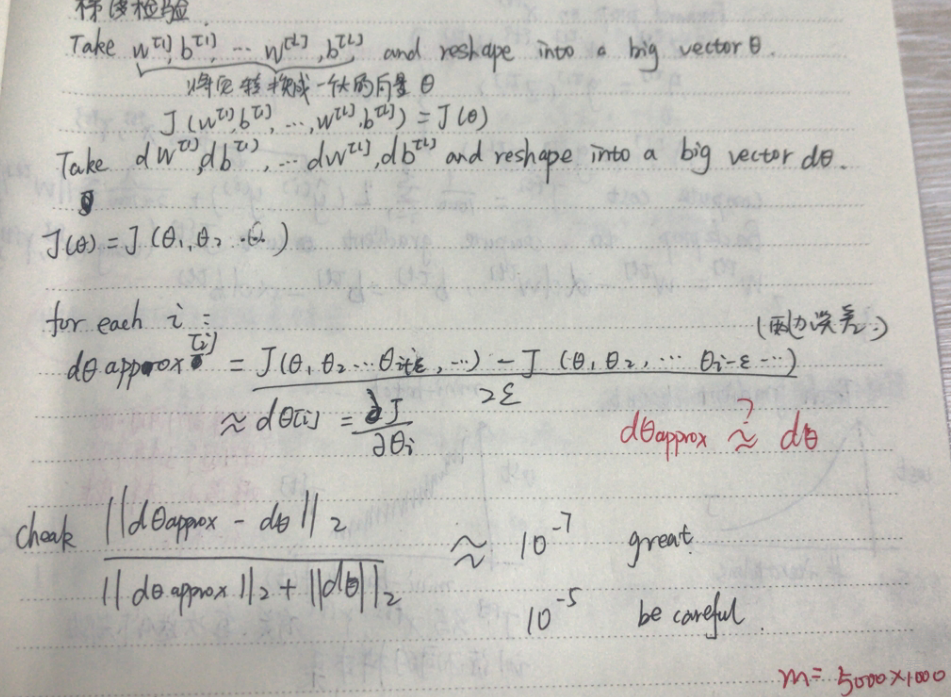 梯度检验.
Take w^[1], b^[1] ... w^[L], b^[L], and reshape into a big vector θ.
转换成一个大的向量 θ
J(w^[1], b^[1], ..., w^[L], b^[L]) = J(θ)
Take dW^[1], db^[1], ... dw^[L], db^[L] and reshape into a big vector dθ.
J(θ) = J(θ1, θ2 ...θi )
for each i :
(双边误差)
dθ approx^[i] = J(θ1 θ2 ... θi+ε, ...) - J (θ1, θ2, ... θi-ε ...) / 2ε
≈ dθ[i] = ∂J / ∂θi
dθapprox ≈? dθ
cheak ||dθapprox - dθ||2 / ||dθapprox||2 + ||dθ||2 ≈ 10^-7 great
10^-5 be careful.
m = 5000×1000